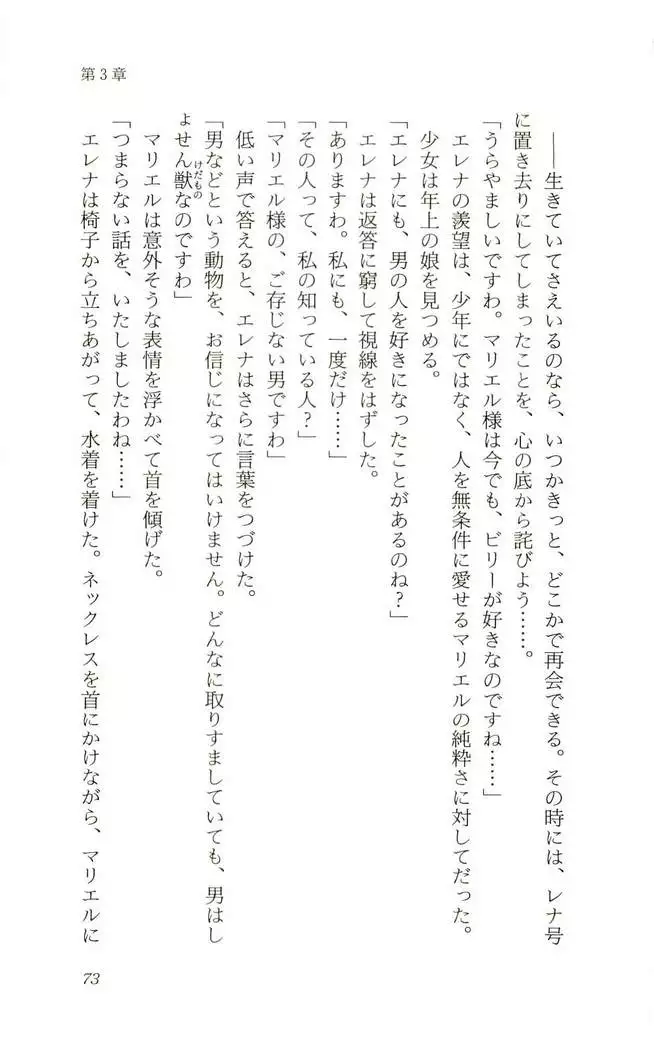 第3章
――生きていてさえいるのなら、いつかきっと、どこかで再会できる。その時には、レナ号
に置き去りにしてしまったことを、心の底から詫びよう……。
「うらやましいですわ。マリエル様は今でも、ビリーが好きなのですね……」
エレナの羨望は、少年にではなく、人を無条件に愛せるマリエルの純粋さに対してだった。
少女は年上の娘を見つめる。
「エレナにも、男の人を好きになったことがあるのね?」
エレナは返答に窮して視線をはずした。
「ありますわ。私にも、一度だけ……」
「その人って、私の知っている人?」
「マリエル様の、ご存じない男ですわ」
低い声で答えると、エレナはさらに言葉をつづけた。
「男などという動物を、お信じになってはいけません。どんなに取りすましていても、男はし
ょせん獣なのですわ」
けだもの
マリエルは意外そうな表情を浮かべて首を傾げた。
「つまらない話を、いたしましたわね……」
エレナは椅子から立ちあがって、水着を着けた。ネックレスを首にかけながら、マリエルに
73